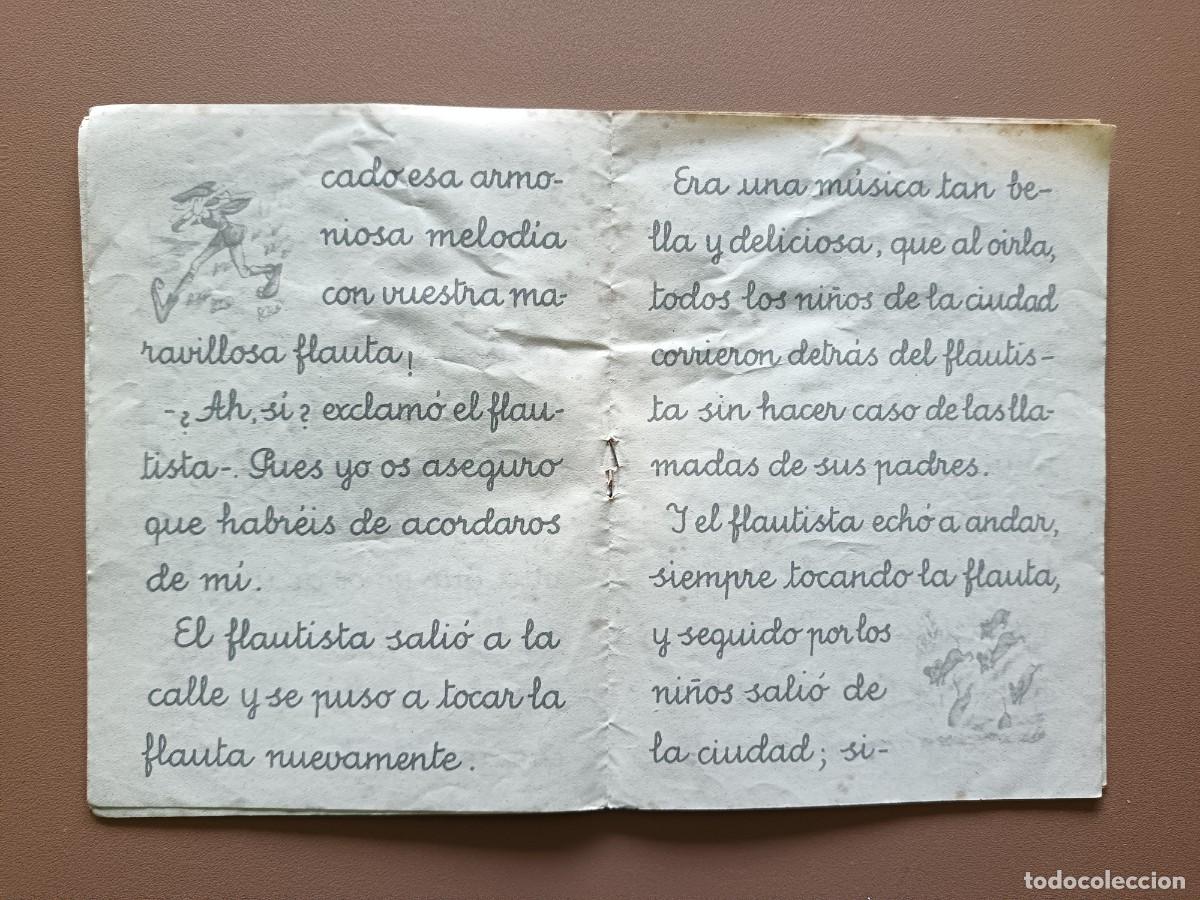 cado esa armo-
niosa melodía
con vuestra ma-
ravillosa flauta!
-¿Ah, sí? exclamó el flau-
tista-. Pues yo os aseguro
que habréis de acordaros
de mí.
El flautista salió a la
calle y se puso a tocar la
flauta nuevamente.
Era una música tan be-
lla y deliciosa, que al oirla,
todos los niños de la ciudad
corrieron detrás del flautis-
ta sin hacer caso de las lla-
madas de sus padres.
Y el flautista echó a andar,
siempre tocando la flauta,
y seguido por los
niños salió de
la ciudad; si-
todocoleccion